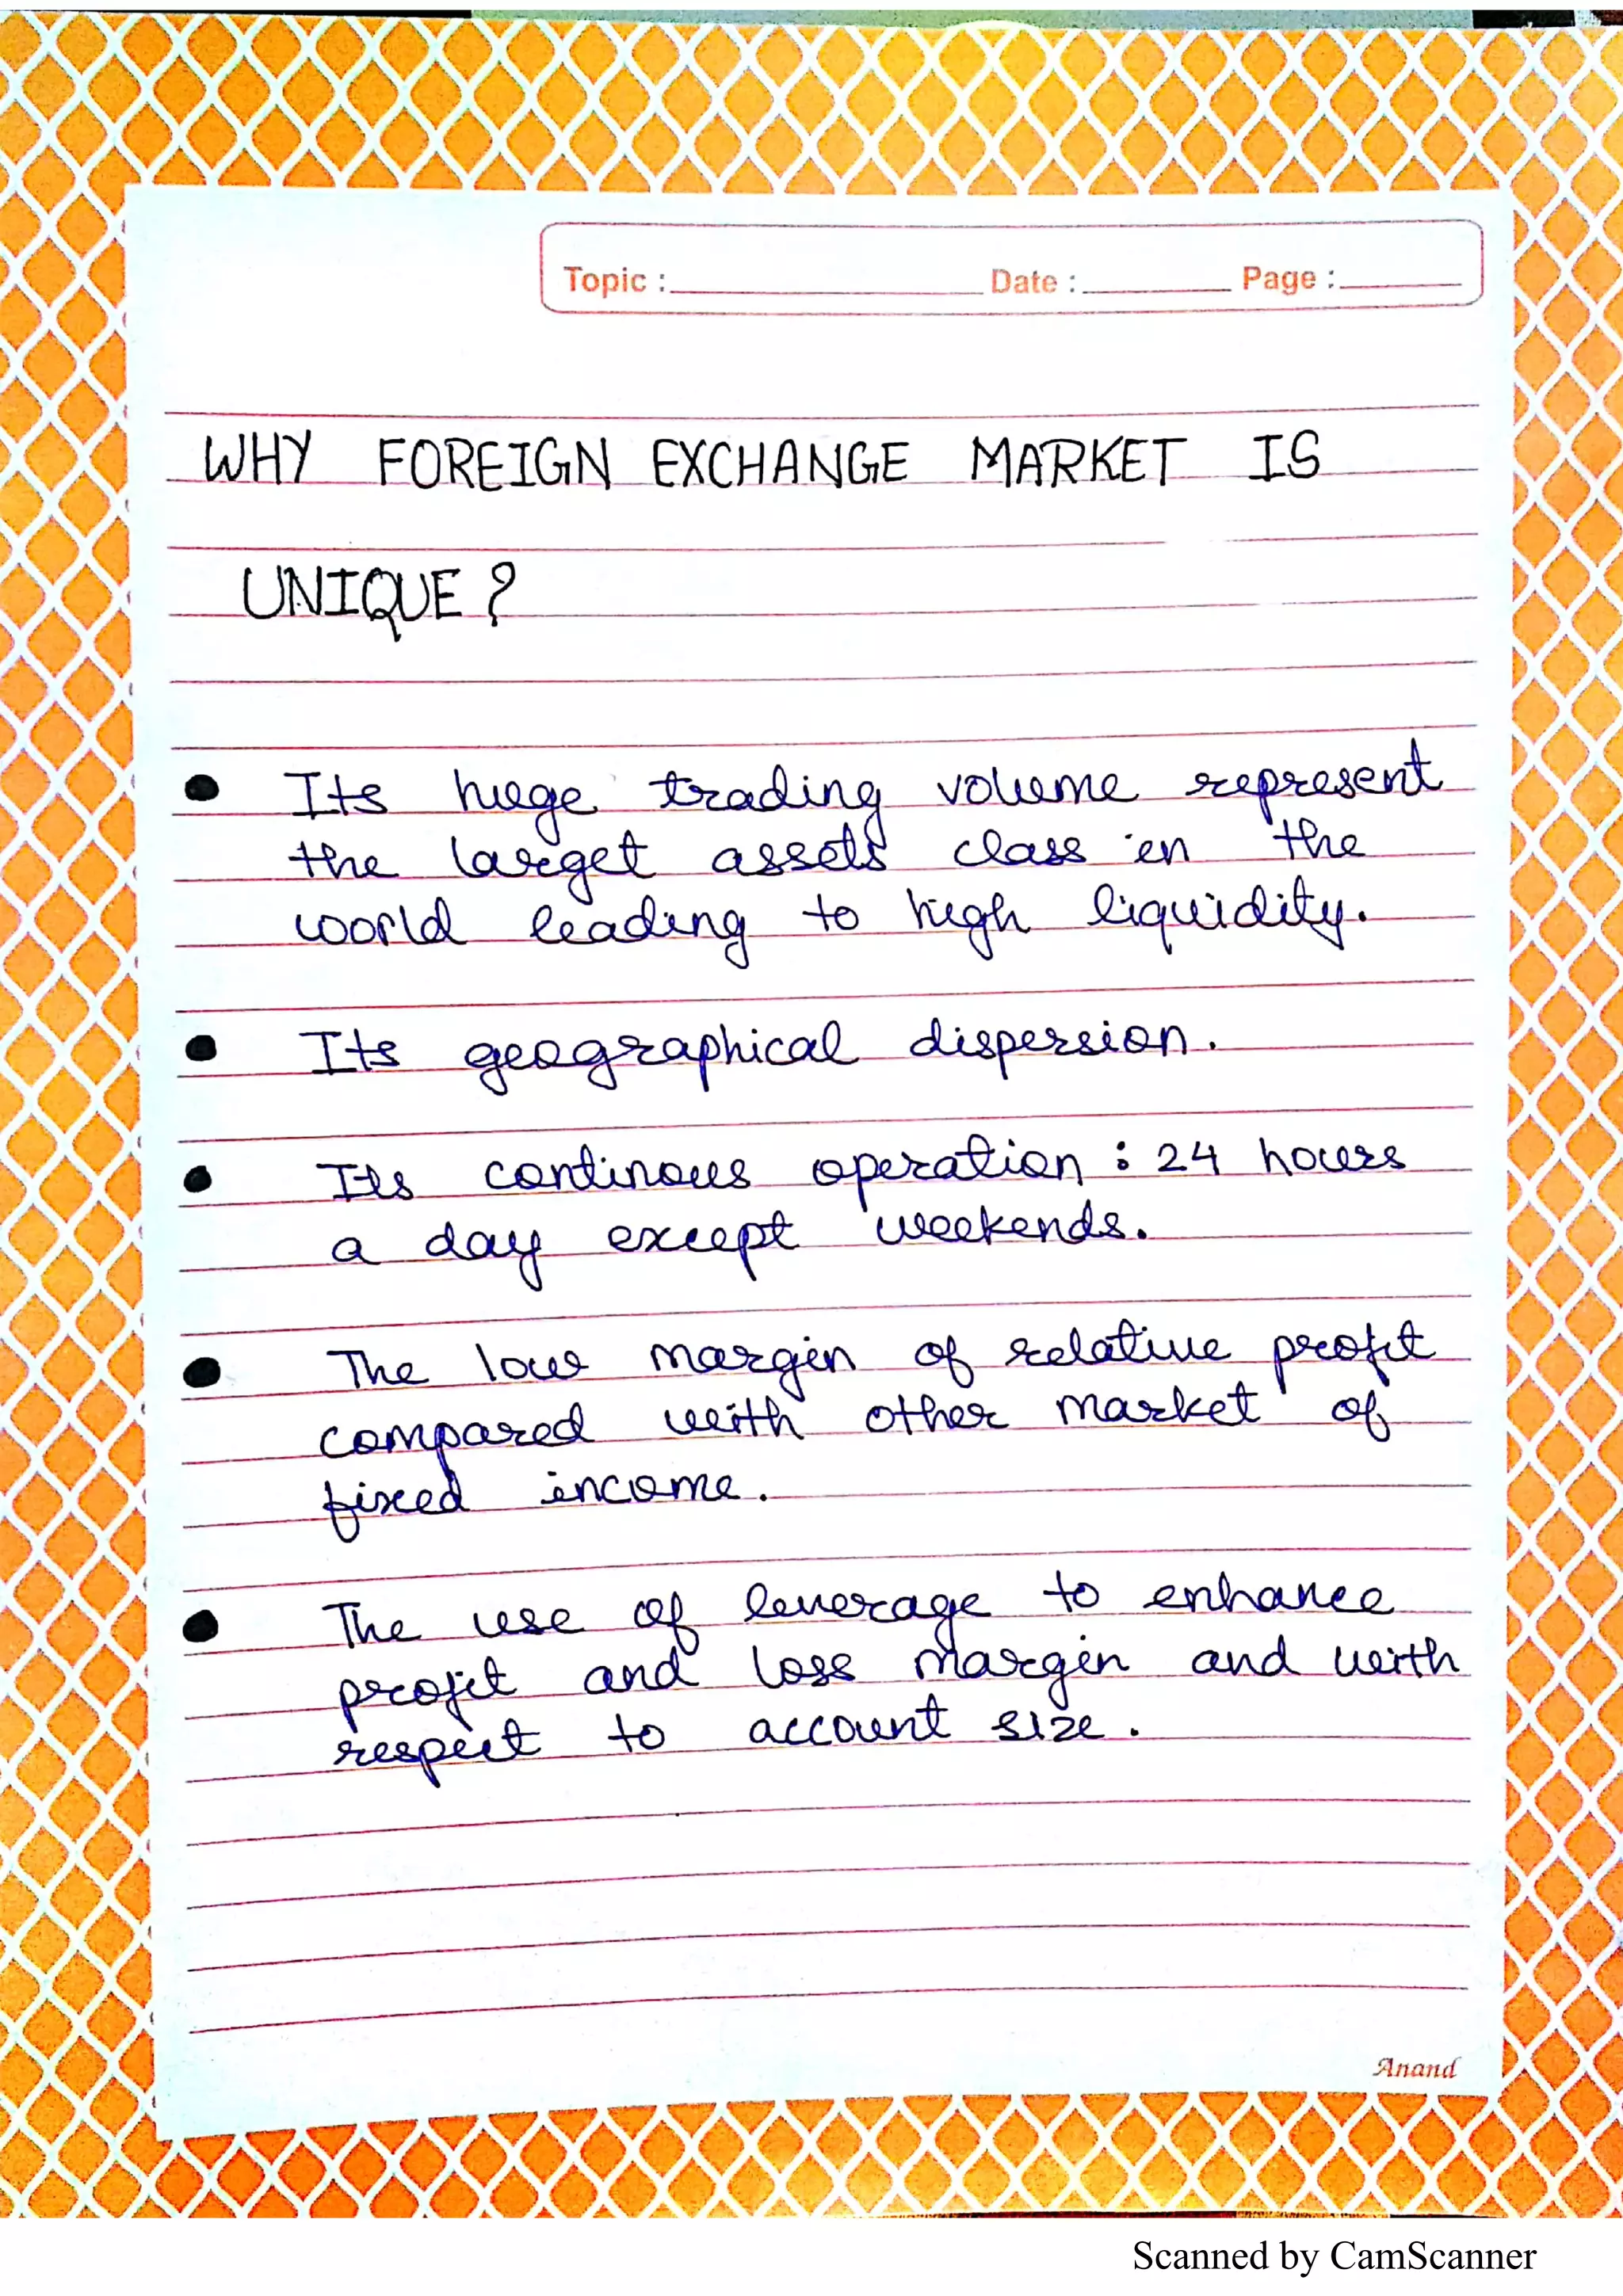 Topic : Date : Page :
WHY FOREIGN EXCHANGE MARKET IS
UNIQUE ?
• Its huge trading volume represent
the larget assets class in the
world leading to high liquidity.
• Its geographical dispersion.
• Its continous operation : 24 hours
a day except weekends.
• The low margin of relative profit
compared with other market of
fixed income.
• The use of leverage to enhance
profit and loss margin and with
respect to account size.
Anand
Scanned by CamScanner